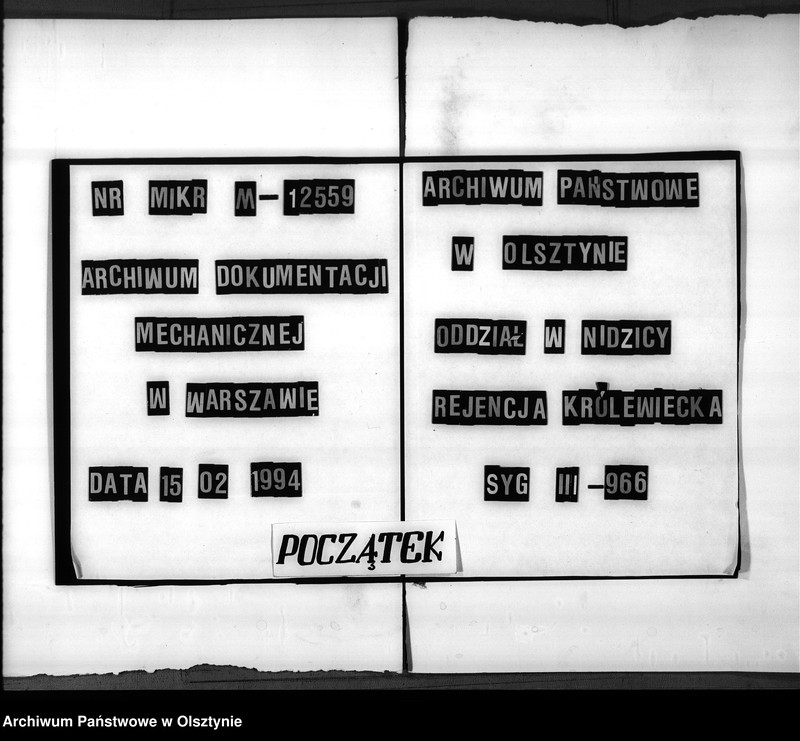 NR MIKR M-12559
ARCHIWUM DOKUMENTACJI
MECHANICZNEJ
W WARSZAWIE
DATA 15 02 1994
ARCHIWUM PAŃSTWOWE
W OLSZTYNIE
ODDZIAŁ W NIDZICY
REJENCJA KRÓLEWIECKA
SYG III-966
POCZĄTEK
Archiwum Państwowe w Olsztynie